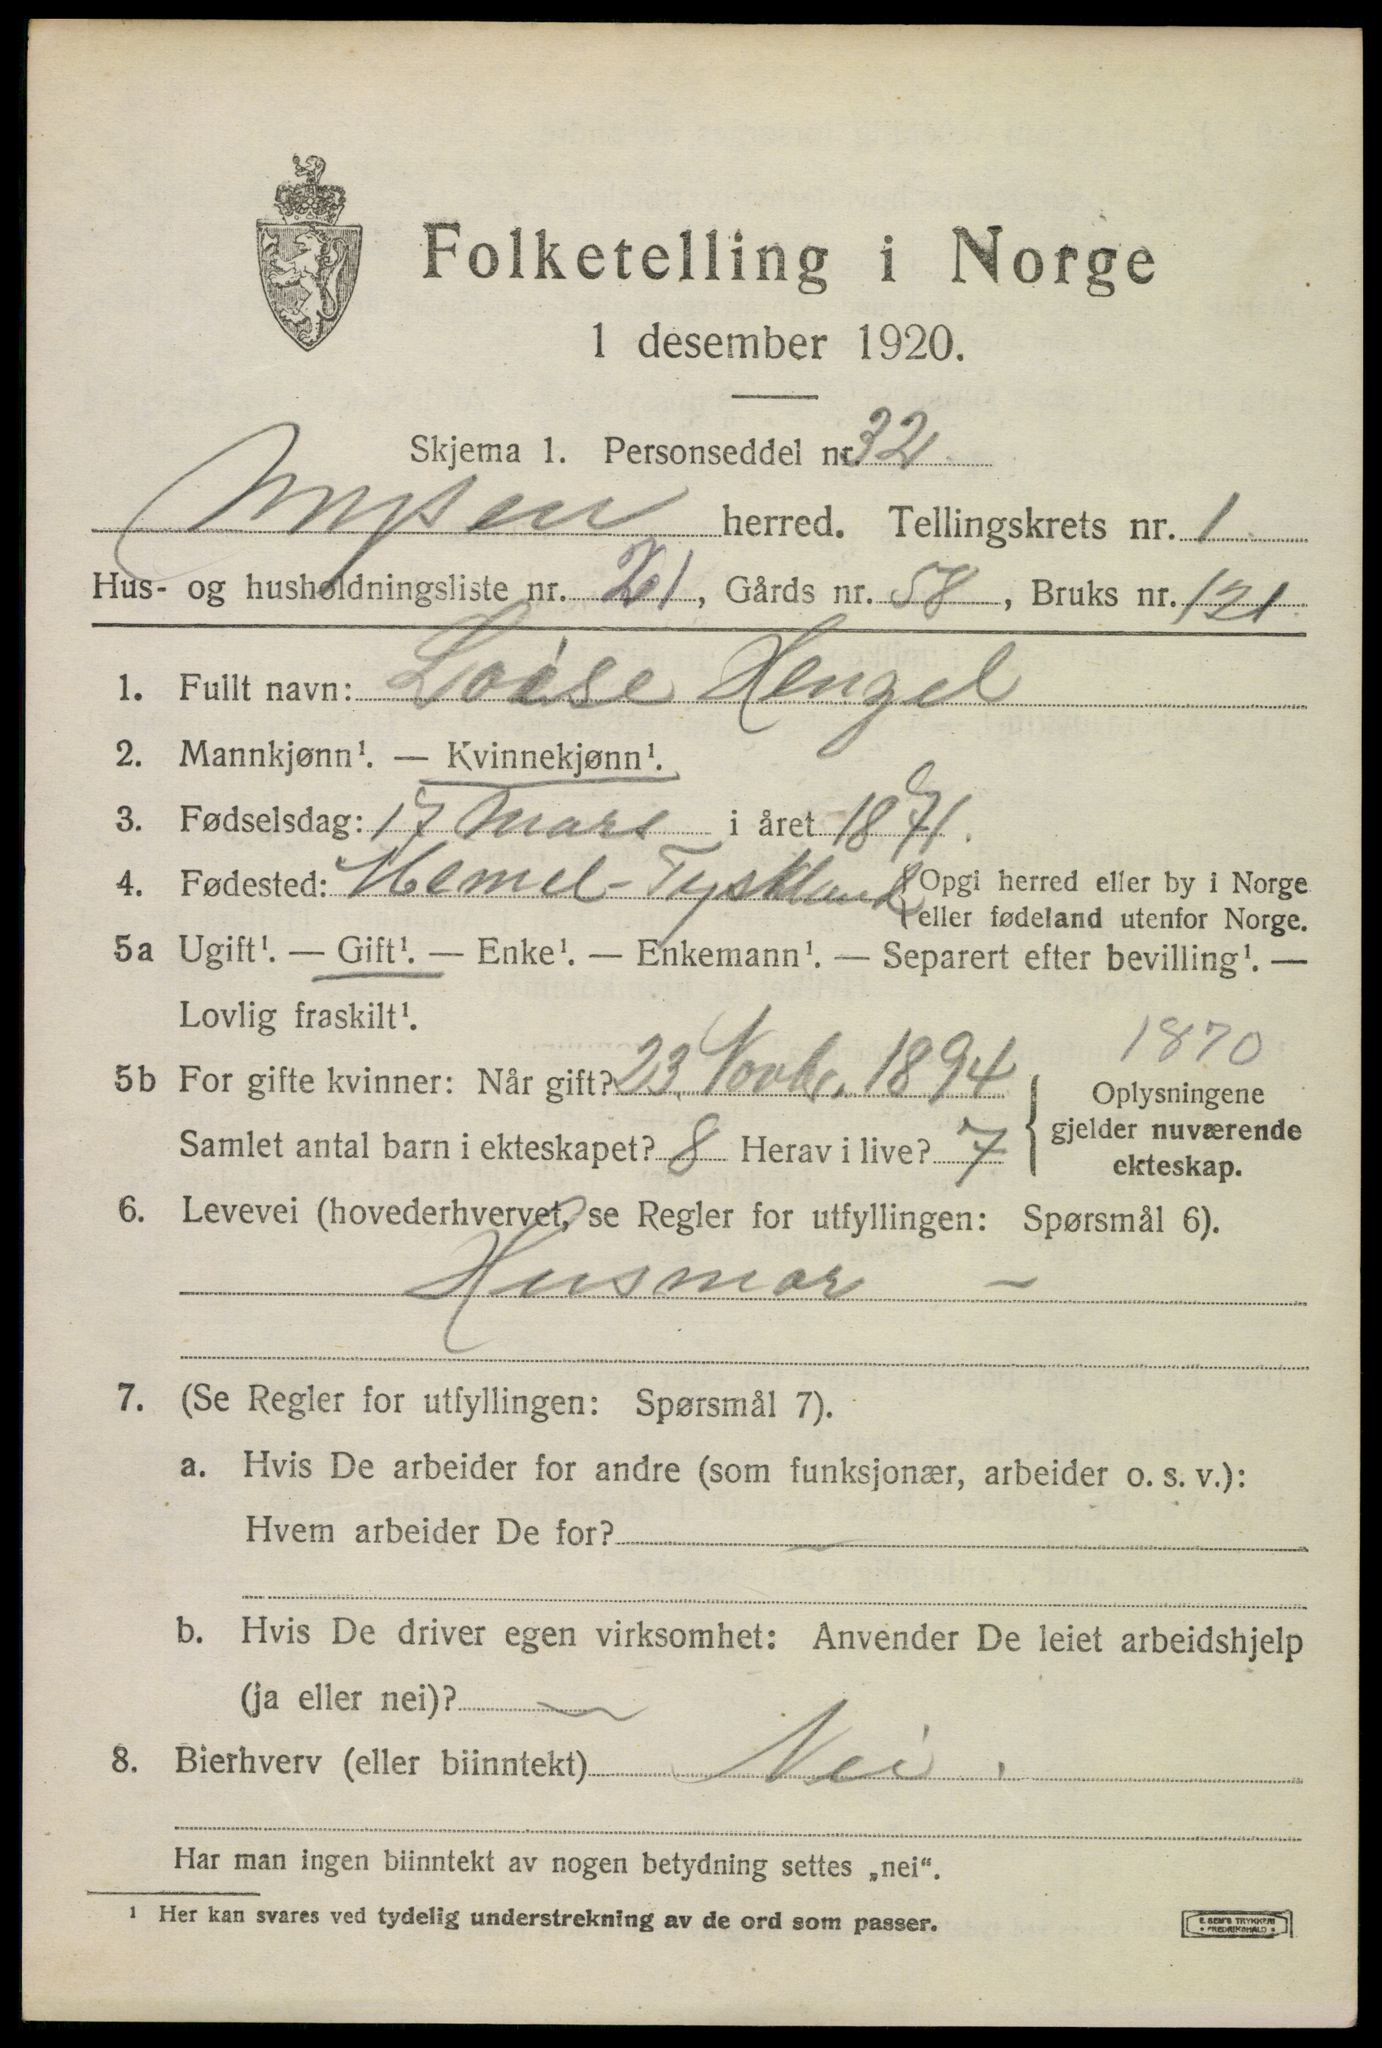 Folketelling i Norge
1 desember 1920.
Skjema 1. Personseddel nr. 32
Mysen herred. Tellingskrets nr. 1
Hus- og husholdningsliste nr. 21, Gårds nr. 58, Bruks nr. 121
1. Fullt navn: Loise Hengel
2. Mannkjønn¹. — Kvinnekjønn¹.
3. Fødselsdag: 17 Mars i året 1871.
4. Fødested: Memel - Tyskland { Opgi herred eller by i Norge
eller fødeland utenfor Norge.
5a Ugift¹. — Gift¹. — Enke¹. — Enkemann¹. — Separert efter bevilling¹. —
Lovlig fraskilt¹.
1870
5b For gifte kvinner: Når gift? 23. Novbr. 1894
Samlet antal barn i ekteskapet? 8 Herav i live? 7
{ Oplysningene
gjelder nuværende
ekteskap.
6. Levevei (hovederhvervet, se Regler for utfyllingen: Spørsmål 6).
Husmor —
7. (Se Regler for utfyllingen: Spørsmål 7).
a. Hvis De arbeider for andre (som funksjonær, arbeider o. s. v.):
Hvem arbeider De for? —
b. Hvis De driver egen virksomhet: Anvender De leiet arbeidshjelp
(ja eller nei)? —
8. Bierhverv (eller biinntekt) Nei.
Har man ingen biinntekt av nogen betydning settes „nei“.
¹ Her kan svares ved tydelig understrekning av de ord som passer.
E. SEM'S TRYKKERI
• FREDRIKSHALD •